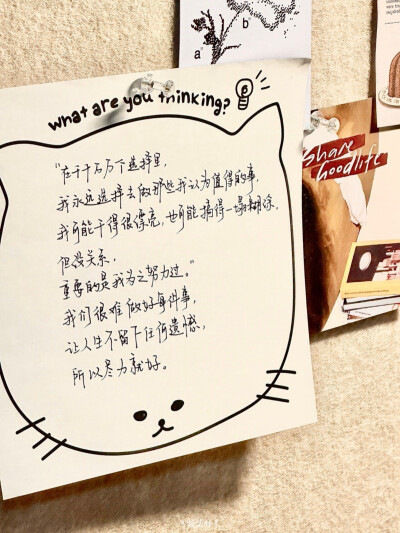 what are you thinking?
“在千千万万个选择里,
我永远选择去做那些我认为值得的事,
我可能干得很漂亮,也可能搞得一塌糊涂.
但没关系,
重要的是我为之努力过。”
我们很难做好每件事,
让人生不留下任何遗憾,
所以尽力就好。
a
b
Share
hoodlife